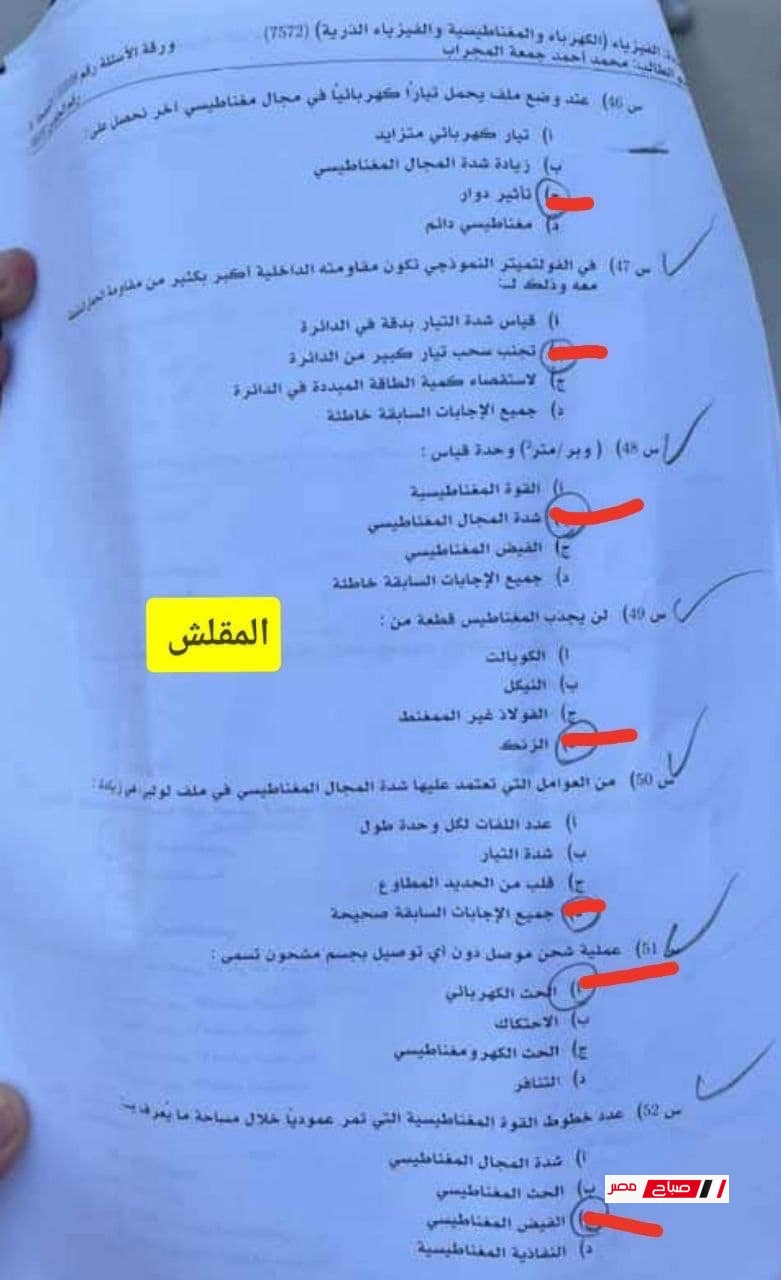 الفيزياء (الكهرباء والمغناطيسية والفيزياء الذرية) (7572)
الطالب: محمد أحمد جمعة المجراب
ورقة الأسئلة رقم
س 46) عند وضع ملف يحمل تيارًا كهربائيًا في مجال مغناطيسي آخر تحصل على:
أ) تيار كهربائي متزايد
ب) زيادة شدة المجال المغناطيسي
ج) تأثير دوار
د) مغناطيسي دائم
س 47) في الفولتميتر النموذجي تكون مقاومته الداخلية أكبر بكثير من مقاومة
معه وذلك لـ:
أ) قياس شدة التيار بدقة في الدائرة
تجنب سحب تيار كبير من الدائرة
ج) لاستقصاء كمية الطاقة المبددة في الدائرة
د) جميع الإجابات السابقة خاطئة
س 48) (وبر/متر²) وحدة قياس :
أ) القوة المغناطيسية
شدة المجال المغناطيسي
ج) الفيض المغناطيسي
د) جميع الإجابات السابقة خاطئة
س 49) لن يجذب المغناطيس قطعة من :
أ) الكوبالت
ب) النيكل
ج) الفولاذ غير الممغنط
الزنك
المقلش
س 50) من العوامل التي تعتمد عليها شدة المجال المغناطيسي في ملف لولبي هي زيادة :
أ) عدد اللفات لكل وحدة طول
ب) شدة التيار
ج) قلب من الحديد المطاوع
جميع الإجابات السابقة صحيحة
51) عملية شحن موصل دون أي توصيل بجسم مشحون تسمى :
أ) الحث الكهربائي
ب) الاحتكاك
ج) الحث الكهرومغناطيسي
د) التنافر
س 52) عدد خطوط القوة المغناطيسية التي تمر عموديًا خلال مساحة ما يُعرف بـ:
أ) شدة المجال المغناطيسي
ب) الحث المغناطيسي
الفيض المغناطيسي
د) النفاذية المغناطيسية
صباح مصر